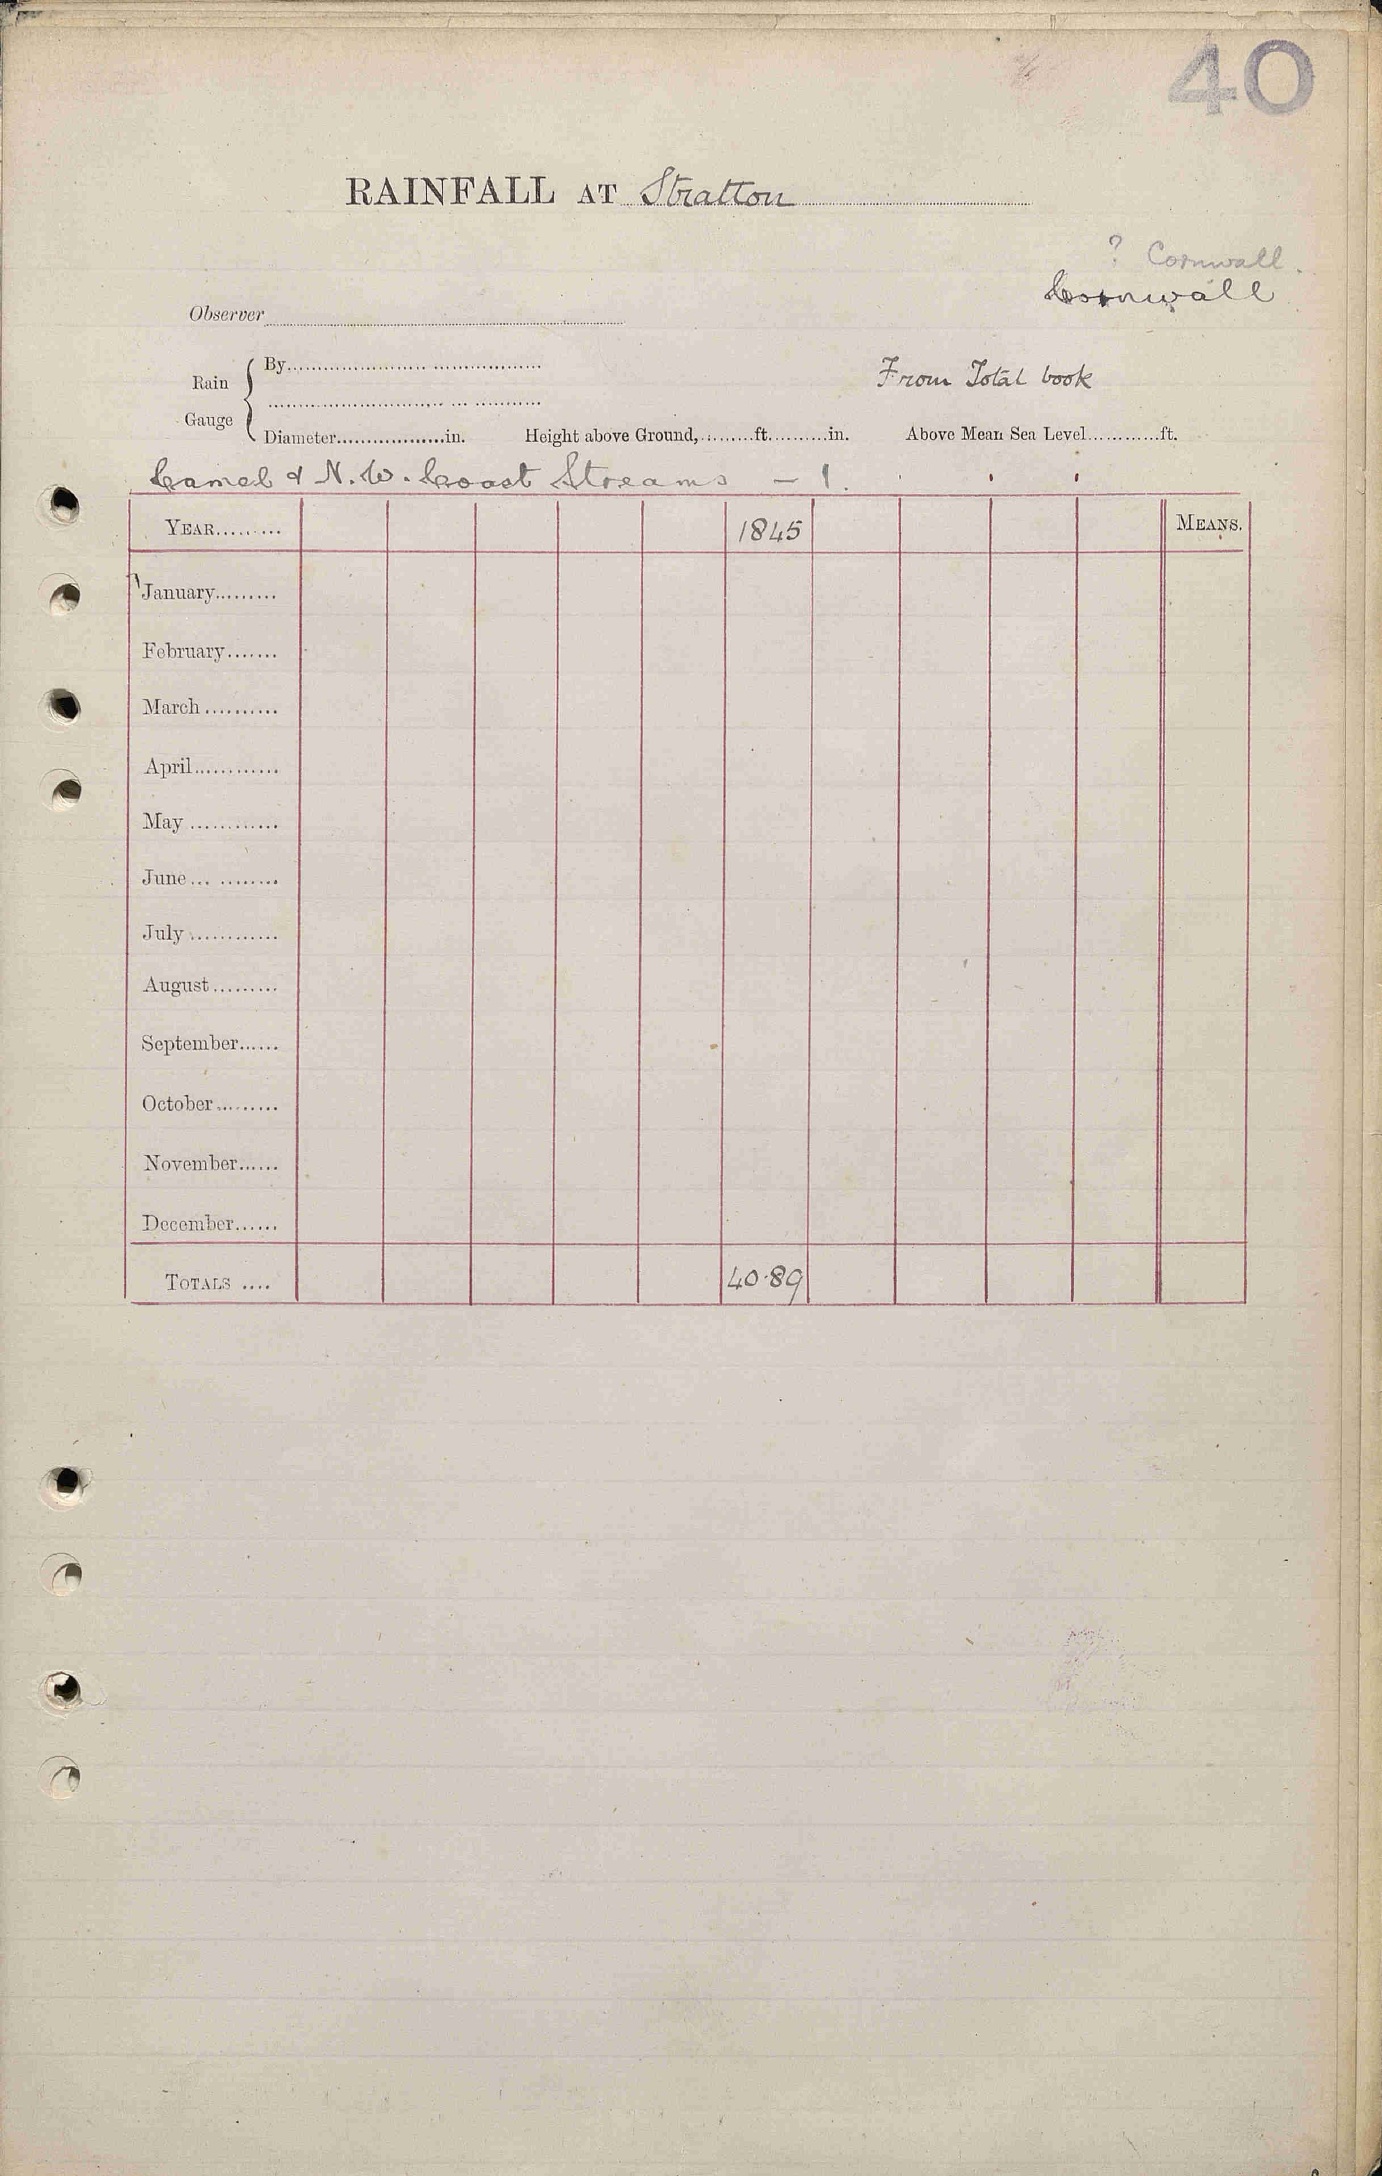 40
RAINFALL AT Stratton
? Cornwall.
Cornwall
Observer
Rain Gauge
By
From Total book
Diameter..................in. Height above Ground,.........ft..........in. Above Mean Sea Level............ft.
Camel & N.W. Coast Streams - 1.
YEAR......... 1845 MEANS.
January.........
February.......
March..........
April............
May............
June............
July............
August.........
September......
October.........
November......
December......
TOTALS .... 40.89